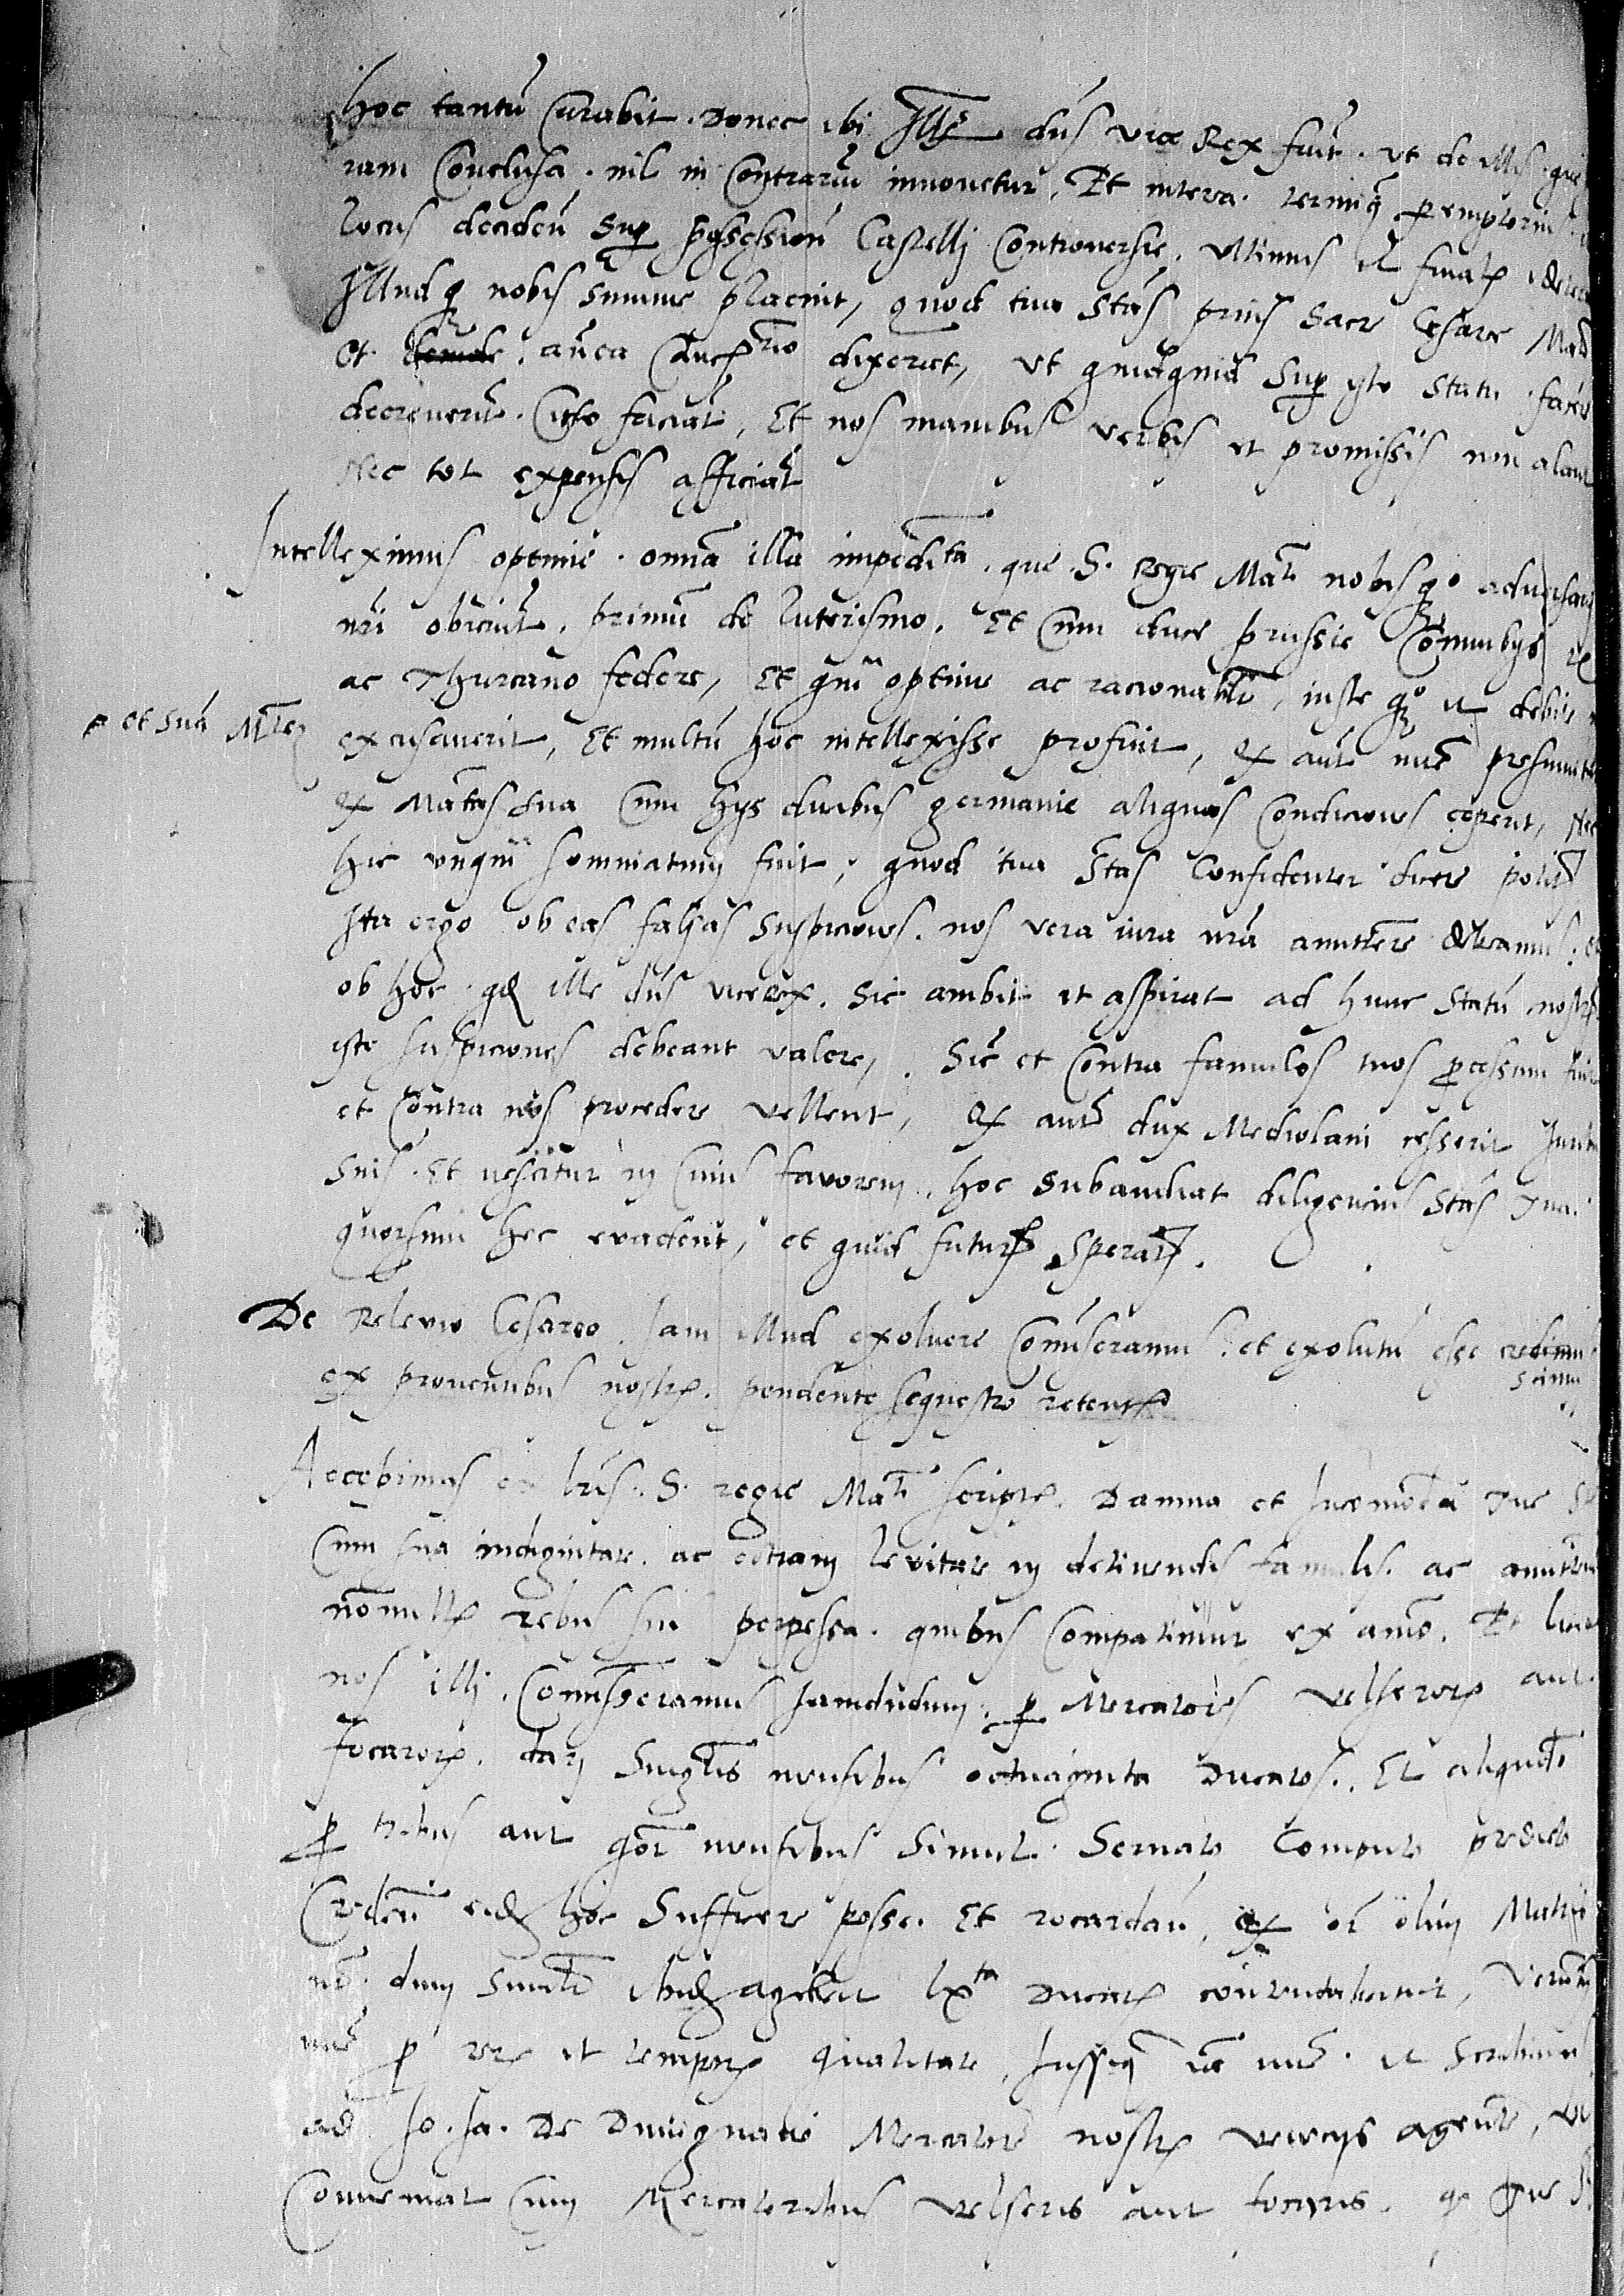 hoc tantũ Curabit. Donec ibi Illẽ dñs vice Rex fuit. ut de illis. que
iam Conclusa. nil in Contrariũ innovetur, Et interea. terminꝫ peremptoriꝰ
locus decideñ Suꝑ possessioñ Castelli Controversie. Ultimus et finalis
Illudqꝫ nobis summe placuit, quod tua Stas prius Sacre Cesaree Mati
Et añea dixerit, ut quidquid Suꝑ isto Statu facere
decreverit. Cito faciat, Et nos manibus verbis et promissis non alant
Nec tot expensis afficiat
Intelleximus optime. omñia illa impedita. que S. regie Mati nobisqꝫ adversarij
nri obiciũt, primũ de luterismo. Et Cum duce prussie Connubys
ac Thurcano federe, Et qm̃ optime ac racionabilr̃, iusteqꝫ et debite
et suã Mtem
excusaverit, Et multũ hoc intellexisse profuit, Qꝫ aũt nũc presumitur
Qꝫ Mãtas sua Cum hijs ducibus germanie aliquas Condiciones ceperit, Nec
hic unqũ somniatum fuit, quod tua Stas Confidenter dicere potest
Ita ergo ob eas falsas Suspiciones. nos vera iura nrã amittere debeamus.
ob hoc. qd ille dñs vicerex. Sic ambit et aspirat ad hunc Statũ nostrum
iste suspiciones debeant valere, Sic et Contra famulos tuos ꝓcessum fuit
et Contra nos procedere vellent, Qꝫ aũt dux Mediolani cesserit
Suis. Et nescitur in Cuius favorem, hoc Subaudiat diligencius Stas Tua.
quorsum hec evadent, et quid futurum Speratur.
De Relevio Cesareo. Iam illud exolvere Comiseramus. et exolutũ esse credimus
scimus
ex proventibus nostris. pendente Sequestro retentis
Accepimus ex lris. S. regie Mati scriptis. Damna et Incomoda Tue
Cum sua indignitate. ac etiam levitate in detinendis famulis. ac amittendis
nõnullis rebus sui perpessa. quibus Compatimur ex animo. Et licet
nos illi Comisseramus Iamdudum. ꝑ Mercatores Velseros aut
focaros. dari Singlis mensibus octuaginta Ducatos. Et aliquãdo
ꝓ tribus aut qor mensibus Simul. Servato Computo predicto
Credeñ eidẽ hoc Sufficere posse. Et recordañ, Qꝫ ei olim
dum Simlr̃ ibidẽ ageret lxta Ducatis contentabatur, Verum
nũc ꝓ rei et temporis qualitate, et Scribimus
ad Jo. Ja. De Dugnano Mercatorẽ nostris Venecijs agente, ut
Conveniat Cum Mercatoribus Velseris aut focaris. qꝫ Tue S